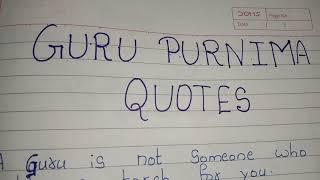 DOMS
Page No.
Date
GURU PURNIMA
QUOTES
A Guru is not Someone who
torch for you.